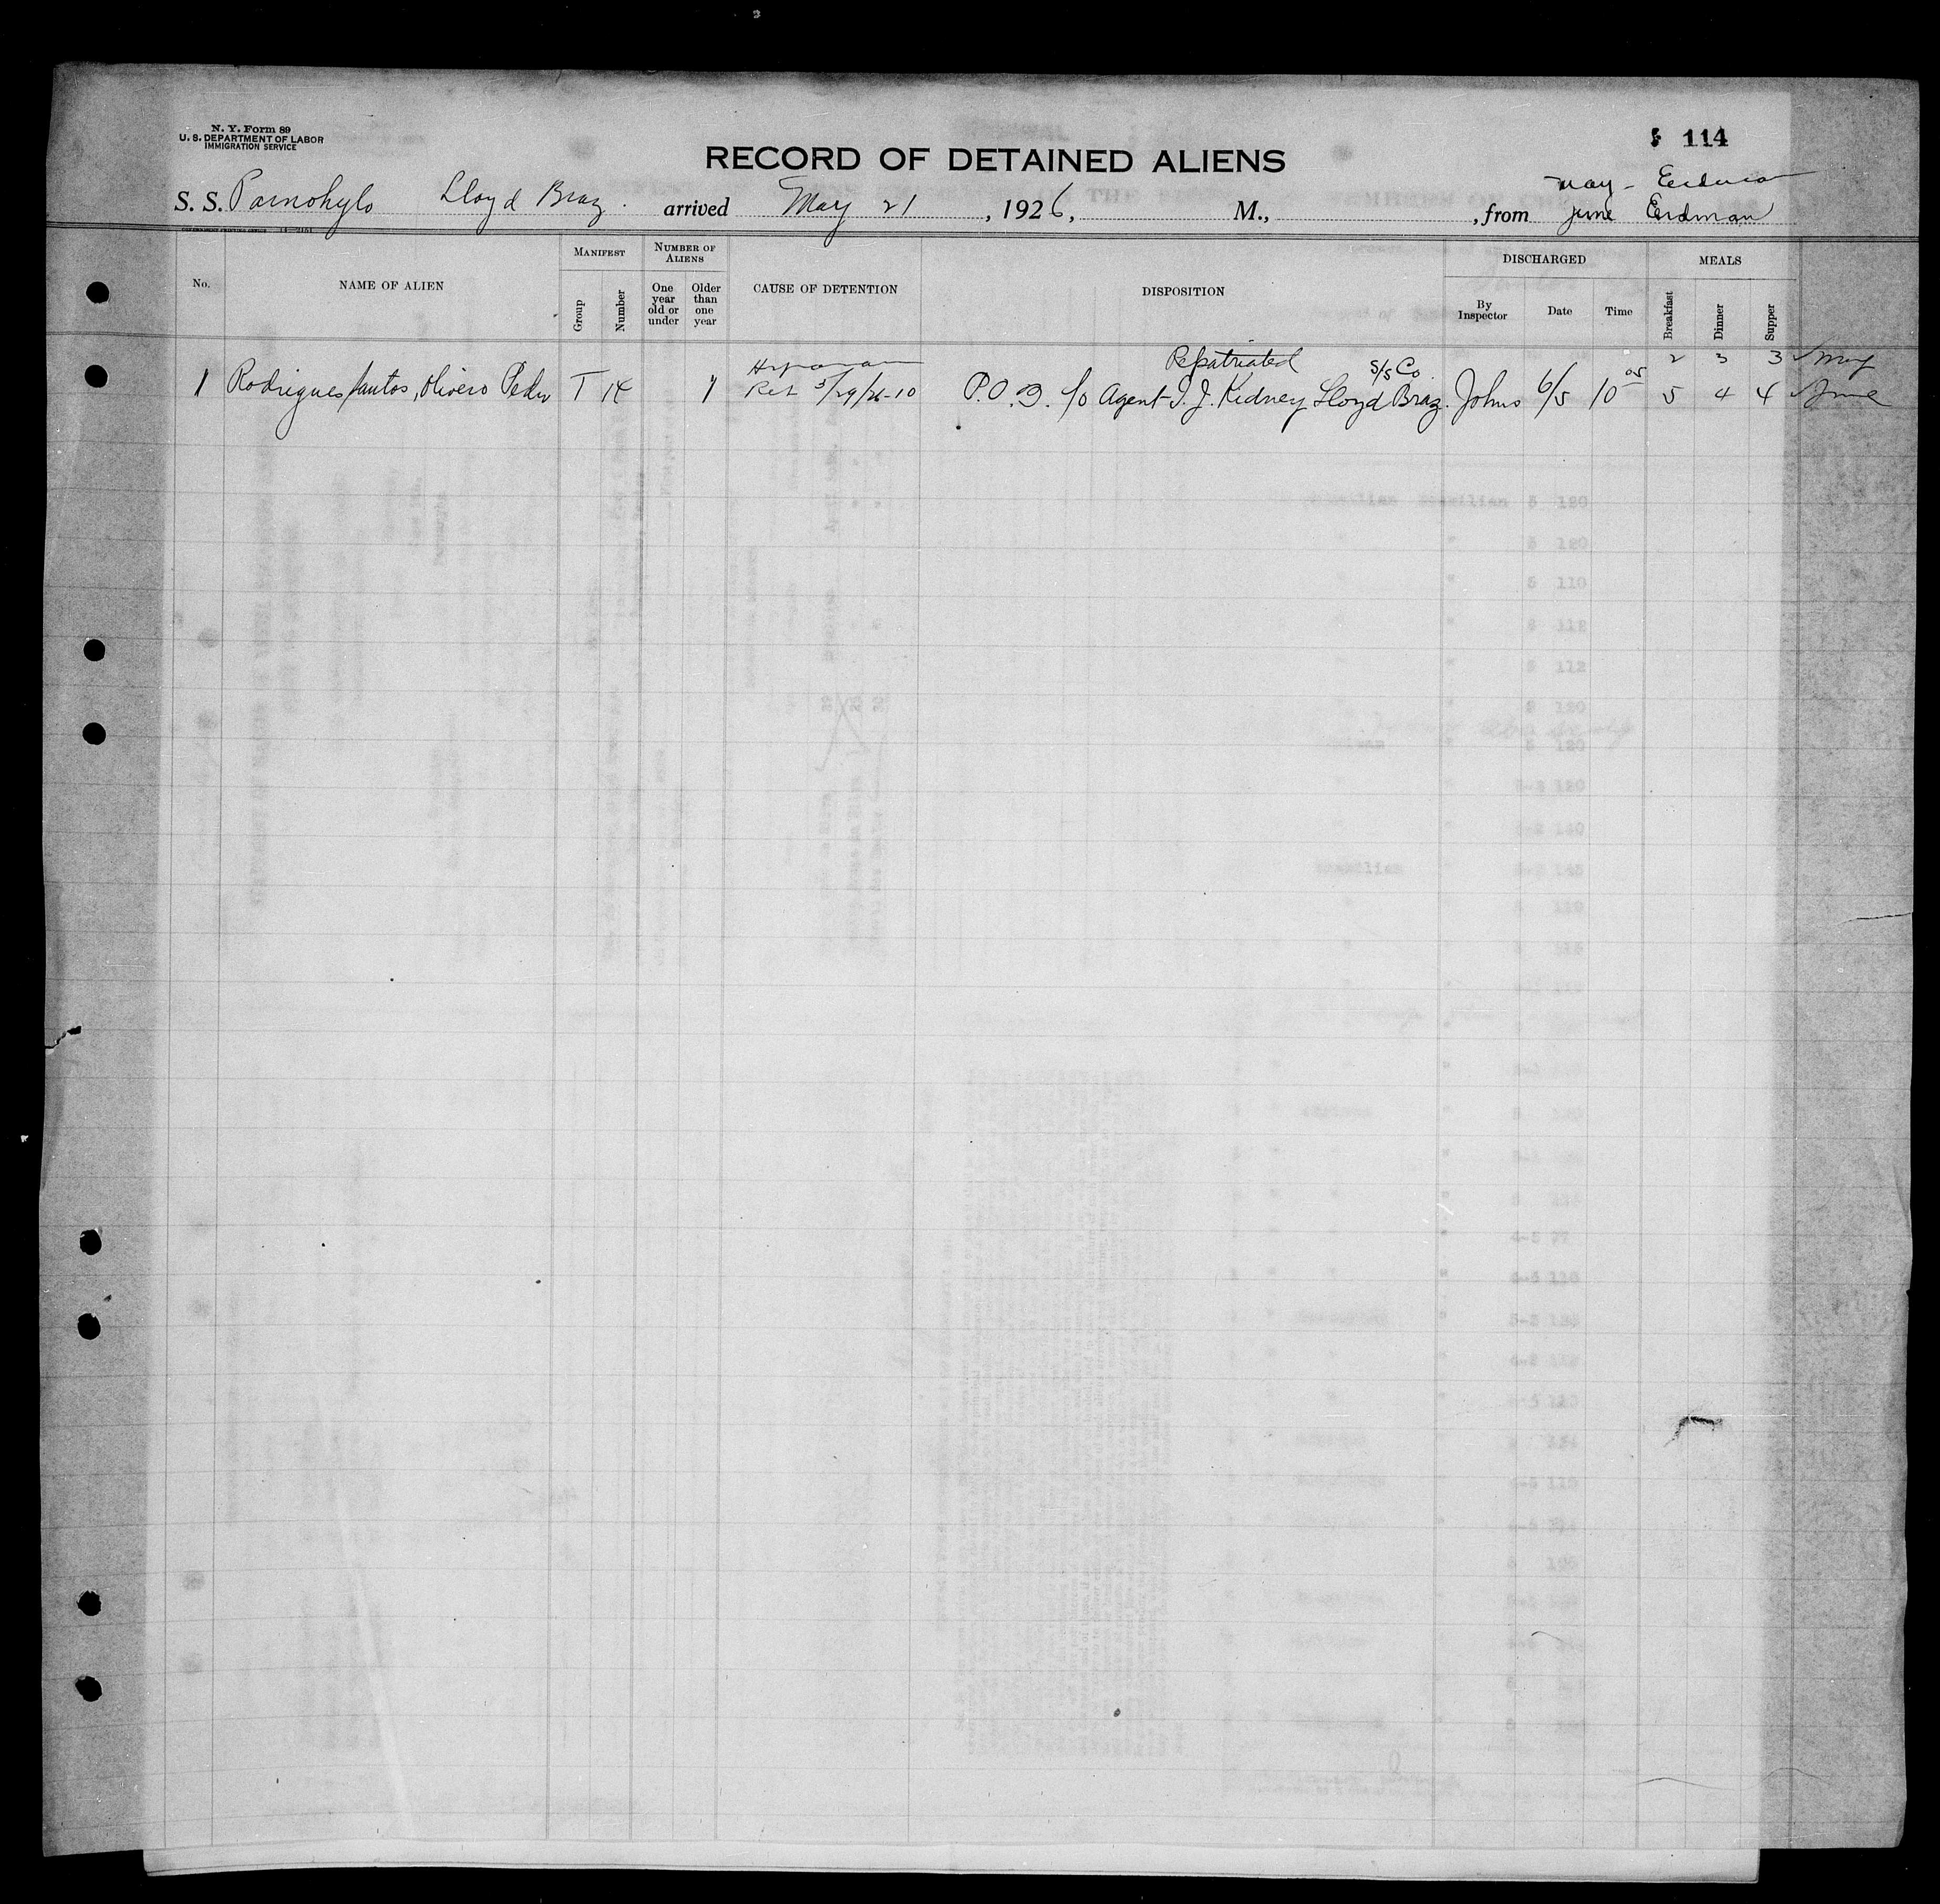 N. Y. Form 89
U. S. DEPARTMENT OF LABOR
IMMIGRATION SERVICE
114
RECORD OF DETAINED ALIENS
May - Erdman
S. S. Parnohylo Lloyd Braz. arrived May 21, 1926, M., from June Erdman
GOVERNMENT PRINTING OFFICE
No.
NAME OF ALIEN
MANIFEST
Group
Number
NUMBER OF ALIENS
One year old or under
Older than one year
CAUSE OF DETENTION
DISPOSITION
DISCHARGED
By Inspector
Date
Time
MEALS
Breakfast
Dinner
Supper
Repatriated S/S Co. 2 3 3 ✓ May
1 Rodrigues Santos, Olivero Pedro T 14 1 Ret 5/29/26-10 P.O.B. c/o Agent - T. J. Kidney Lloyd Braz. Johns 6/5 10 05 5 4 4 ✓ June